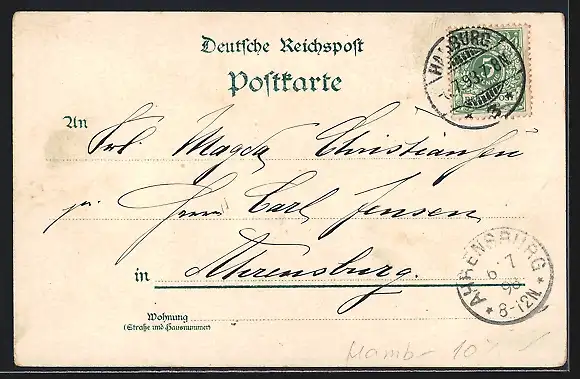 Deutsche Reichspost
Postkarte
HAMBURG
5
An Frl. Magda Christiansen
pr. Herrn Carl Jensen
in Ahrensburg.
AHRENSBURG
6 7
98
* 8-12N *
Wohnung
(Straße und Hausnummer)
Hamb 10